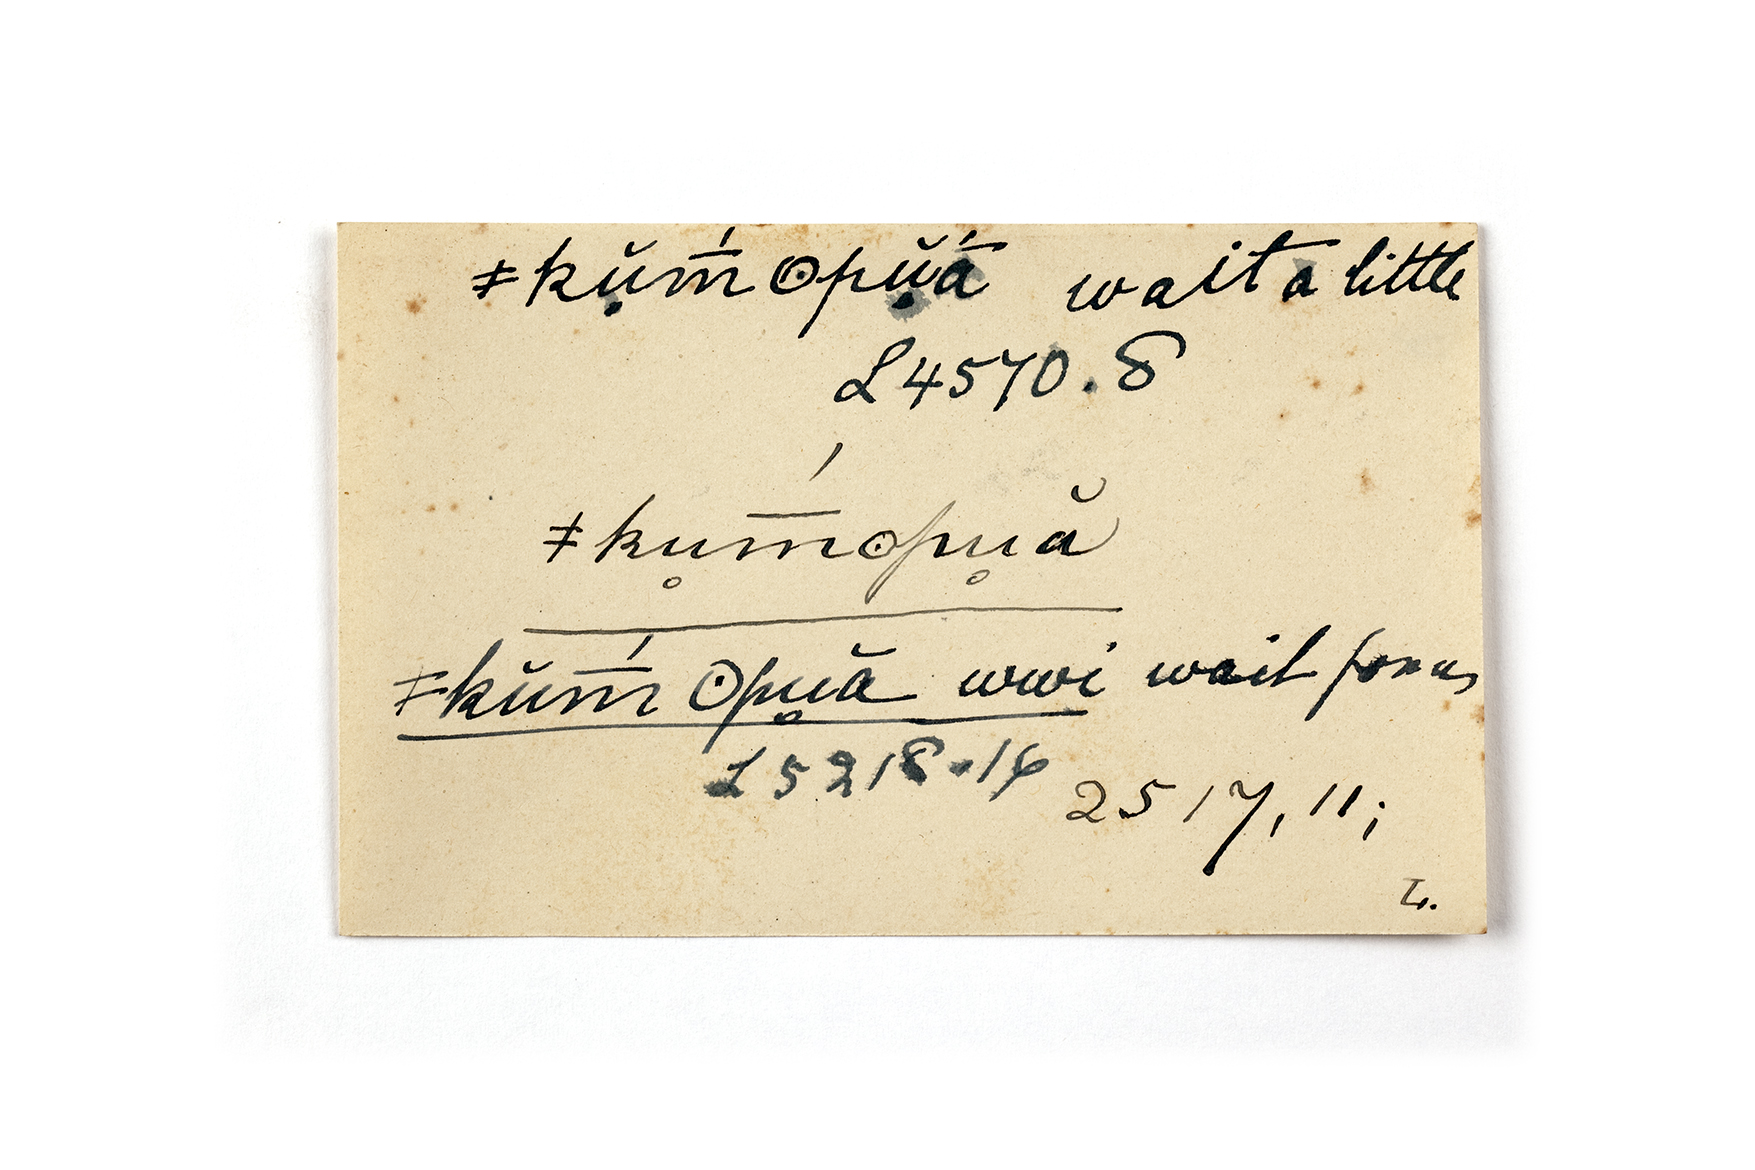 ǂkụ̆ḿ̄ ʘpụ̆ā́ wait a little
L4570.8
ǂku̥ḿ̄ʘpu̥ă
ǂkŭḿ̄ ʘpu̥ă wwi wait for us
L5218.16 2517, 11;
L.